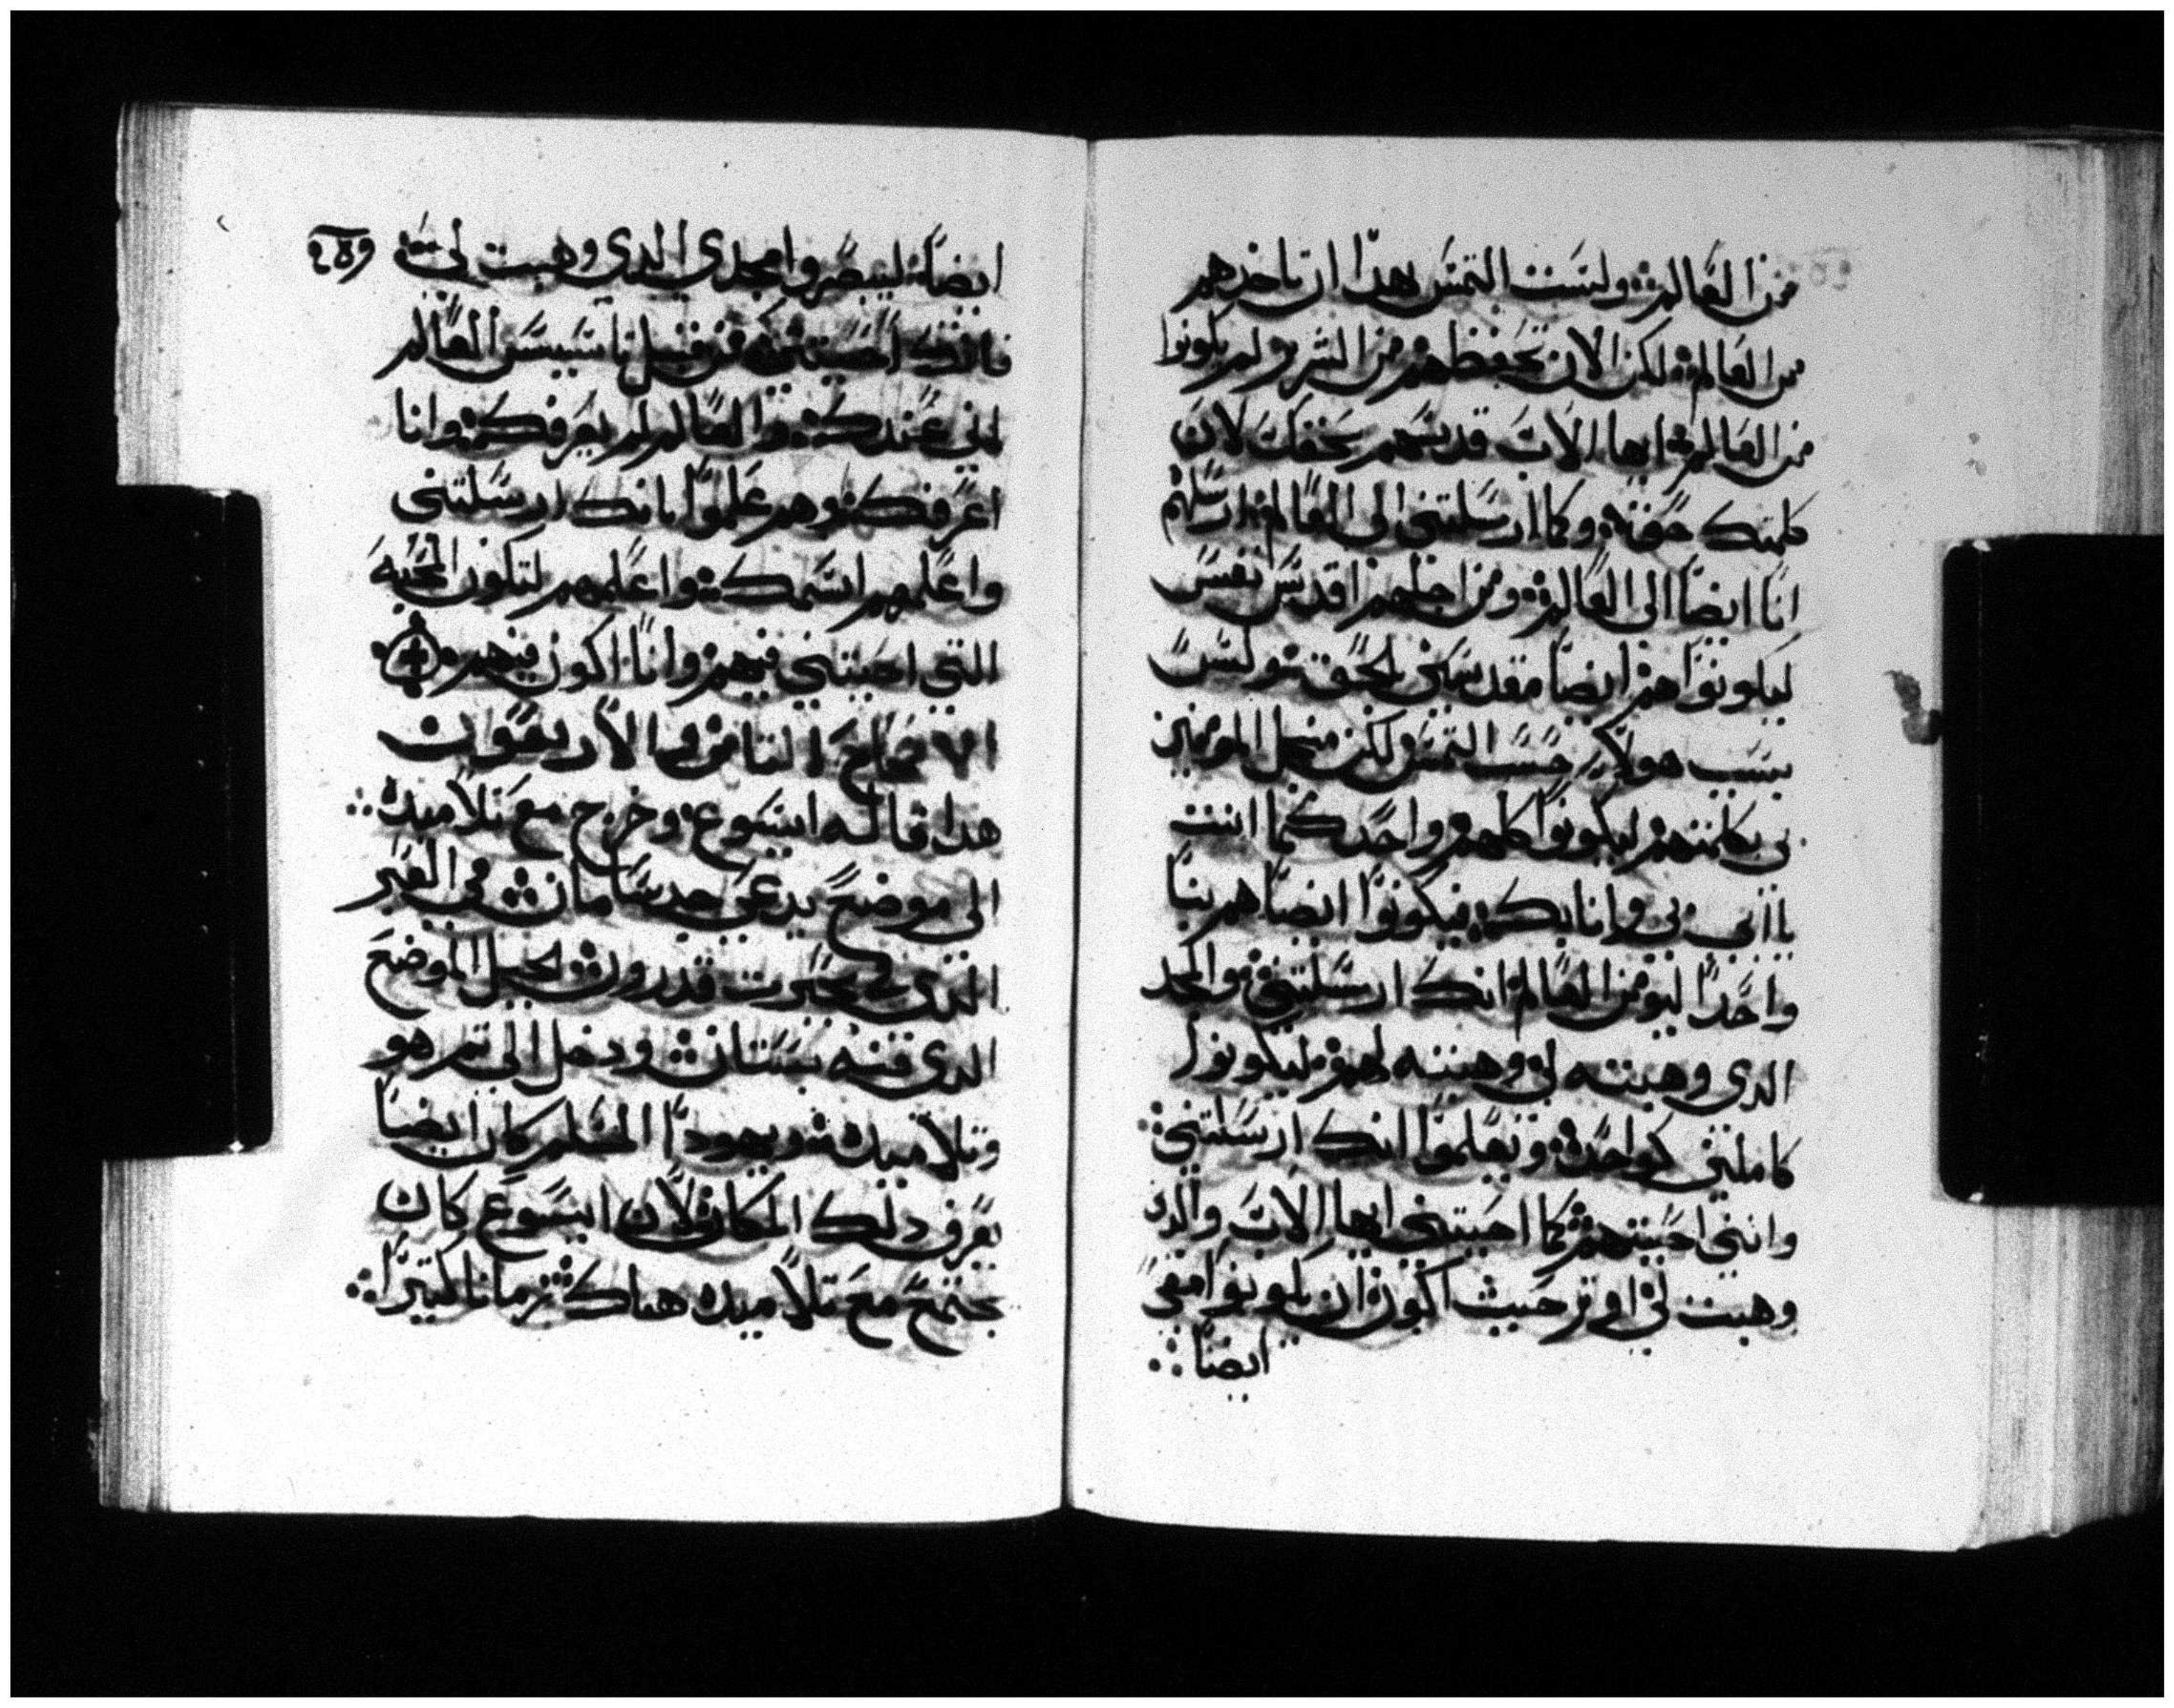 من العالم ولست التمس بهدا ان تاخدهم
من العالم لكن الان تحفظهم من الشر ولم يكونوا
من العالم ايها الاب قدسهم بحقك لان
كلمتك حق وكما ارسلتني الى العالم ارسلهم
انا ايضا الى العالم ومن اجلهم اقدس نفسي
ليكونوا هم ايضا مقدسين بالحق وليس
بسبب هولاي حسب التمس ولكن منجل المومنين
بي بكلمتهم ليكونوا كلهم واحد كما انت
يا ابي بي وانا بك فيكونوا ايضا هم بنا
واحدا ليومن العالم انك ارسلتني والمجد
الدي وهبته لي وهبته لهم ليكونوا
كاملين كواحد ويعلموا انك ارسلتني
وانني احببتهم كما احببتني ايها الاب والدي
وهبت لي اوثر حيث اكون ان يكونوا معي
ايضا
ايضا ليبصروا مجدي الدي وهبت لي
فانك احببتني من قبل تاسيس العالم
لاني عندك والعالم لم يعرفك وانا
اعرفك وهم علموا بانك ارسلتني
واعلمهم اسمك واعلمهم لتكون المحبة
التي احببتني فيهم وانا اكون فيهم
الاصحاح الثامن والاربعون
هدا قاله ايسوع وخرج مع تلاميده
الى موضع يدعى جدسامان في العبر
الدي يحيرت قدرون بجبل الموضع
الدي فيه بستان ودخل الى تم هو
وتلاميده ويهودا المسلم كان ايضا
يعرف دلك المكان لان ايسوع كان
يجتمع مع تلاميده هناك زمانا كتيرا